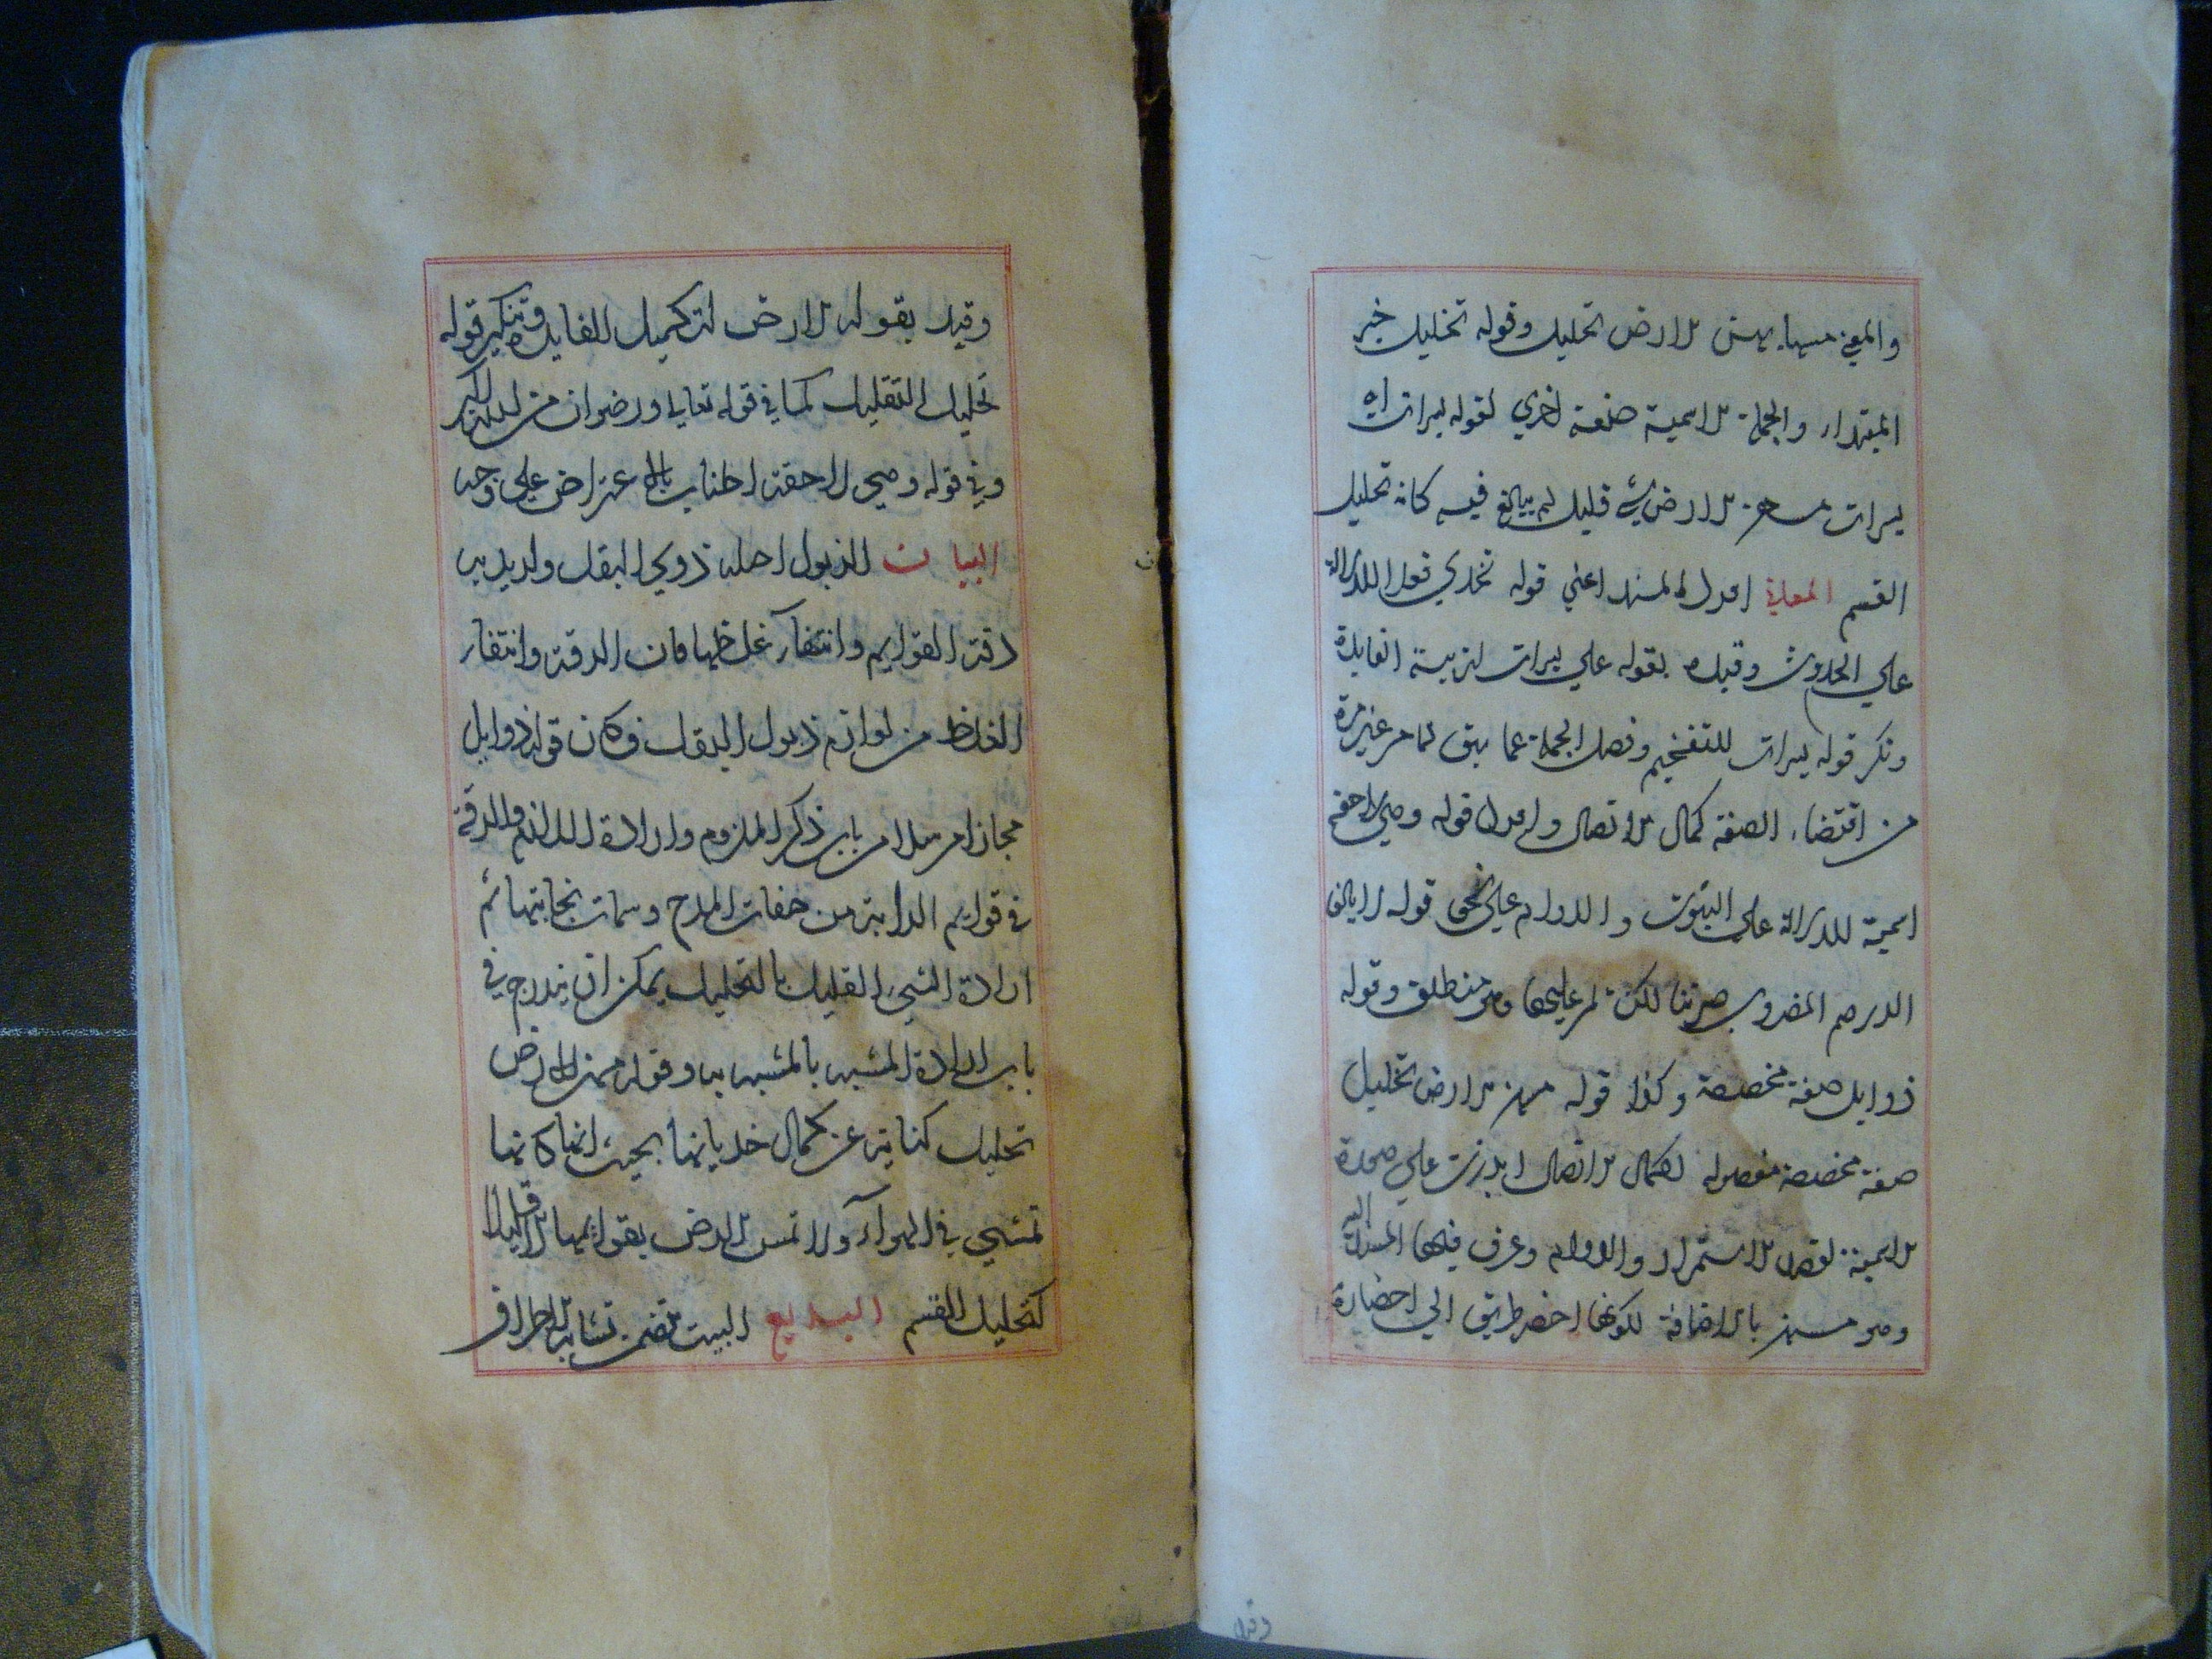 والمعنى مسها بهن الارض تحليل وقوله تحليل خبر
المبتدا، والجملة الاسمية صفة اخري لقوله يسرات اي
يسرات مسهن الارض شيء قليل لم يبالغ فيه كانه تحليل
القسم المعاني اورد المسند اعني قوله تخدي فعلا للدلالة
علي الحدوث وقيده بقوله علي يسرات لتربية الفايدة
ونكر قوله يسرات للتفخيم وفصل الجملة عما سبق لما مر غير مرة
من اقتضاء الصفة كمال الاتصال واورد قوله وهي لاحقة
اسمية للدلالة علي الثبوت والدوام علي نحو قوله لا يالف
الدرهم المضروب صرتنا لكن يمر عليها وهو منطلق وقوله
ذوابل صفة مخصصة وكذا قوله مسهن الارض تحليل
صفة مخصصة مفصولة لكمال الاتصال ابرزت علي صورة
الاسمية لقصد الاستمرار والدوام وعرف فيها المسند اليه
وهو مسهن بالاضافة لكونها اخصر طريق الي احضاره
وقيد
وقيد بقوله الارض لتكميل الفايدة وتنكير قوله
تحليل للتقليل كما في قوله تعالي ورضوان من الله اكبر
وفي قوله وهي لاحقة اطناب بالاعتراض علي وجه
البيان الذبول اصله ذوي البقل واريد به
دقة القوايم وانتفآء غلظها فان الدقة وانتفاء
الغلظ من لوازم ذبول البقل فكان قوله ذوابل
مجازا مرسلا من باب ذكر الملزوم وارادة اللازم والدقة
في قوايم الدابة من صفات المدح وسمات نجابتها ثم
ارادة الشيء القليل بالتحليل يمكن ان يندرج في
باب ارادة المشبه بالمشبه به وقوله مسهن الارض
تحليل كناية عن كمال خديانها بحيث انها كانها
تمشي في الهوآء ولا تمس الارض بقوايمها الا قليلا
كتحليل القسم البديع البيت تضمن تشابه الاطراف